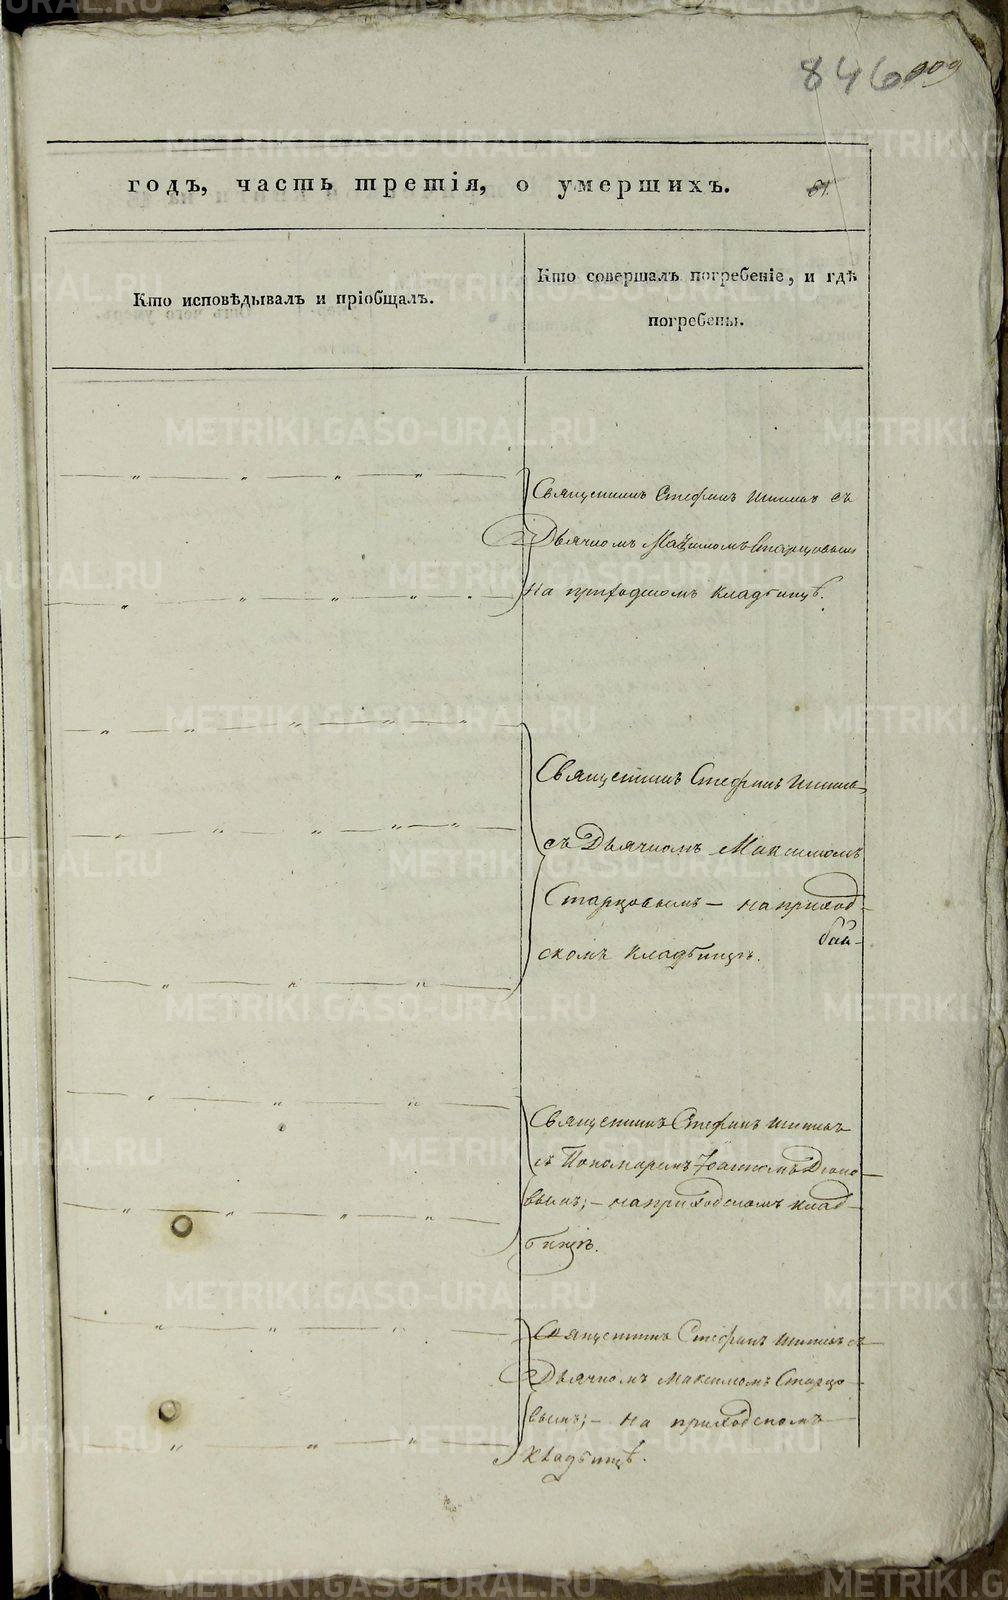 846 909
годъ, часть третія, о умершихъ. 81.
Кто исповѣдывалъ и пріобщалъ.
Кто совершалъ погребеніе, и гдѣ
погребены.
Священникъ Стефанъ съ
Дьячкомъ Максимомъ Старцовымъ
на приходскомъ кладбищѣ.
Священникъ Стефанъ
съ Дьячкомъ Максимомъ
Старцовымъ – на приход-
скомъ кладбищѣ.
Священникъ Стефанъ
съ Пономаремъ Іоанномъ
вымъ; – на приходскомъ клад-
бищѣ.
Священникъ Стефанъ съ
Дьячкомъ Максимомъ Старцо-
вымъ; – на приходскомъ
кладбищѣ.
METRIKI.GASO-URAL.RU